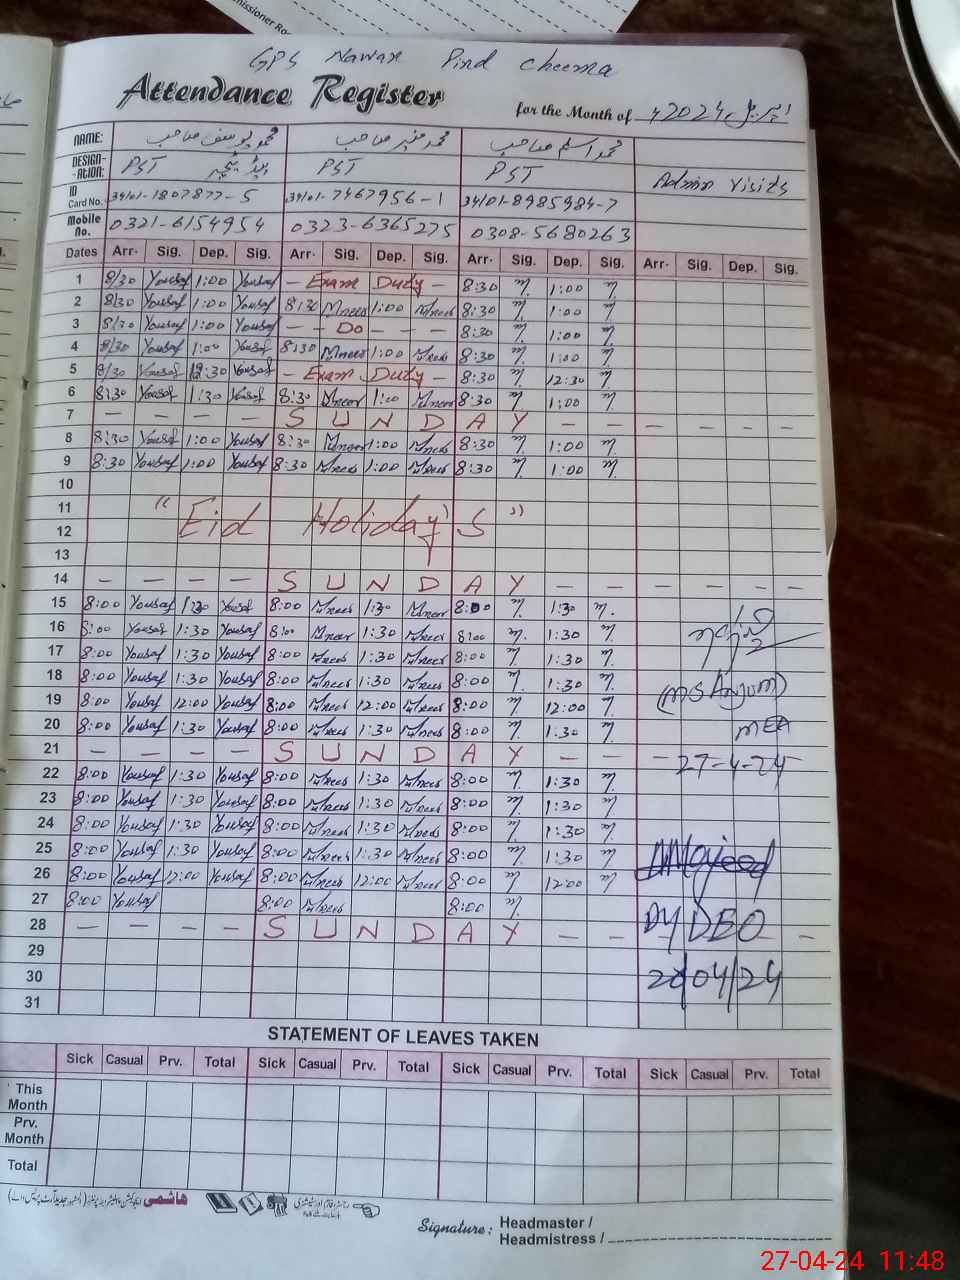 missioner Ro
GPS Nawan Pind Cheema
Attendance Register
for the Month of اپریل 2024ء
NAME: محمد یوسف صاحب محمد منیر صاحب محمد اسلم صاحب
DESIGN-ATION: PST ہیڈ ٹیچر PST PST Admin Visits
ID Card No. 34101-1807877-5 34101-7467956-1 34101-8985984-7
Mobile No. 0321-6154954 0323-6365275 0308-5680263
Dates Arr. Sig. Dep. Sig. Arr. Sig. Dep. Sig. Arr. Sig. Dep. Sig. Arr. Sig. Dep. Sig.
1 8/30 Yousaf 1:00 Yousaf - Exam Duty - 8:30 m. 1:00 m
2 8/30 Yousaf 1:00 Yousaf 8:30 Muneer 1:00 Muneer 8:30 m. 1:00 m
3 8/30 Yousaf 1:00 Yousaf - - Do - - - 8:30 m. 1:00 m
4 8/30 Yousaf 1:00 Yousaf 8:30 Muneer 1:00 Muneer 8:30 m. 1:00 m
5 8/30 Yousaf 12:30 Yousaf - Exam Duty - 8:30 m. 12:30 m
6 8:30 Yousaf 1:30 Yousaf 8:30 Muneer 1:00 Muneer 8:30 m. 1:00 m
7 - - - - S U N D A Y - - - - - -
8 8:30 Yousaf 1:00 Yousaf 8:30 Muneer 1:00 Muneer 8:30 m. 1:00 m
9 8:30 Yousaf 1:00 Yousaf 8:30 Muneer 1:00 Muneer 8:30 m. 1:00 m
10
11 "Eid Holiday's"
12
13
14 - - - - S U N D A Y - - - - - -
15 8:00 Yousaf 1:30 Yousaf 8:00 Muneer 1:30 Muneer 8:00 m. 1:30 m.
16 8:00 Yousaf 1:30 Yousaf 8:00 Muneer 1:30 Muneer 8:00 m. 1:30 m
17 8:00 Yousaf 1:30 Yousaf 8:00 Muneer 1:30 Muneer 8:00 m. 1:30 m
18 8:00 Yousaf 1:30 Yousaf 8:00 Muneer 1:30 Muneer 8:00 m. 1:30 m (M S Anjum)
19 8:00 Yousaf 12:00 Yousaf 8:00 Muneer 12:00 Muneer 8:00 m. 12:00 m
20 8:00 Yousaf 1:30 Yousaf 8:00 Muneer 1:30 Muneer 8:00 m. 1:30 m MEA
21 - - - - S U N D A Y - - - 27-4-24
22 8:00 Yousaf 1:30 Yousaf 8:00 Muneer 1:30 Muneer 8:00 m. 1:30 m
23 8:00 Yousaf 1:30 Yousaf 8:00 Muneer 1:30 Muneer 8:00 m. 1:30 m
24 8:00 Yousaf 1:30 Yousaf 8:00 Muneer 1:30 Muneer 8:00 m. 1:30 m
25 8:00 Yousaf 1:30 Yousaf 8:00 Muneer 1:30 Muneer 8:00 m. 1:30 m
26 8:00 Yousaf 12:00 Yousaf 8:00 Muneer 12:00 Muneer 8:00 m. 12:00 m
27 8:00 Yousaf 8:00 Muneer 8:00 m. Dy DEO
28 - - - - S U N D A Y - - - - -
29
30
31
STATEMENT OF LEAVES TAKEN
Sick Casual Prv. Total Sick Casual Prv. Total Sick Casual Prv. Total Sick Casual Prv. Total
This Month
Prv. Month
Total
ہاشمی
Signature: Headmaster / Headmistress /
27-04-24 11:48